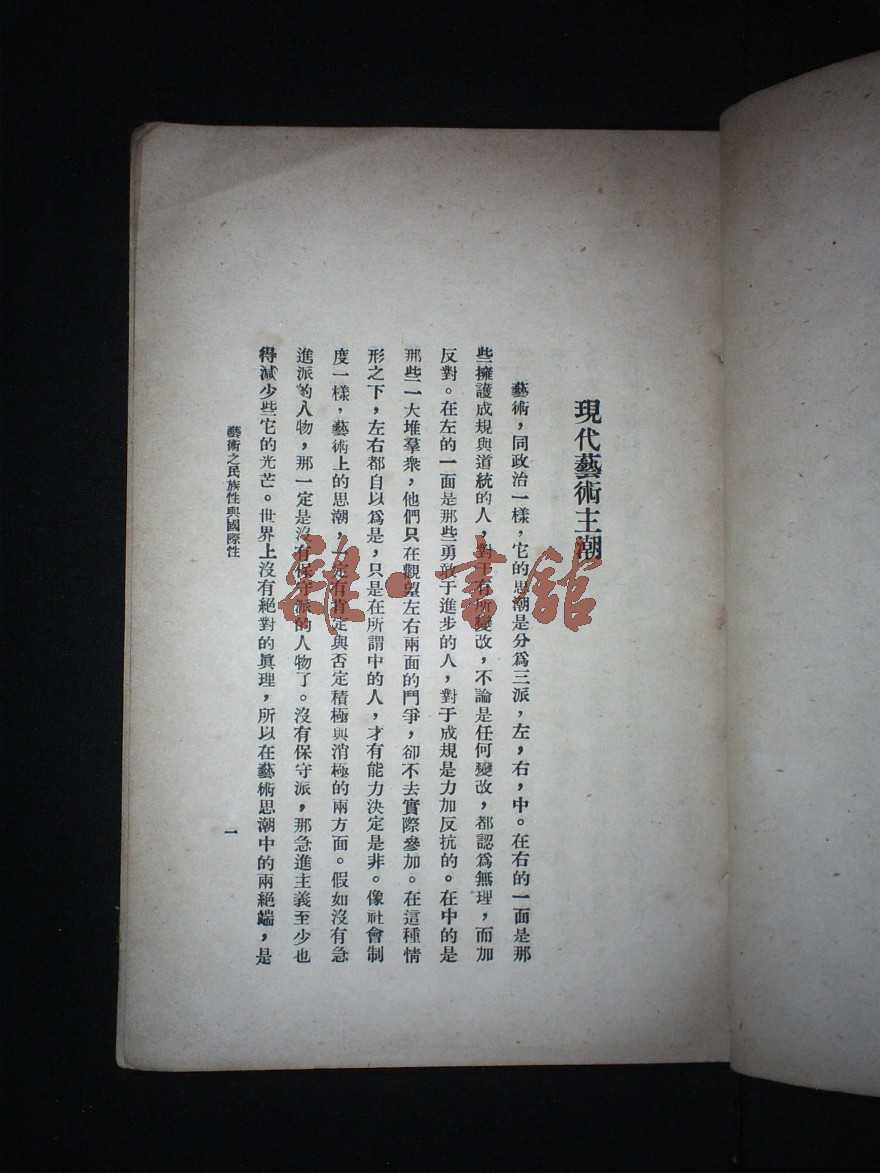 現代藝術主潮
藝術，同政治一樣，它的思潮是分爲三派，左，右，中。在右的一面是那
些擁護成規與道統的人，對于有所變改，不論是任何變改，都認爲無理，而加
反對。在左的一面是那些勇敢于進步的人，對于成規是力加反抗的。在中的是
那些一大堆羣衆，他們只在觀望左右兩面的鬥爭，卻不去實際參加。在這種情
形之下，左右都自以爲是，只是在所謂中的人，才有能力決定是非。像社會制
度一樣，藝術上的思潮，一定有肯定與否定積極與消極的兩方面。假如沒有急
進派的人物，那一定是沒有保守派的人物了。沒有保守派，那急進主義至少也
得減少些它的光芒。世界上沒有絕對的眞理，所以在藝術思潮中的兩絕端，是
藝術之民族性與國際性
一
雜·書館